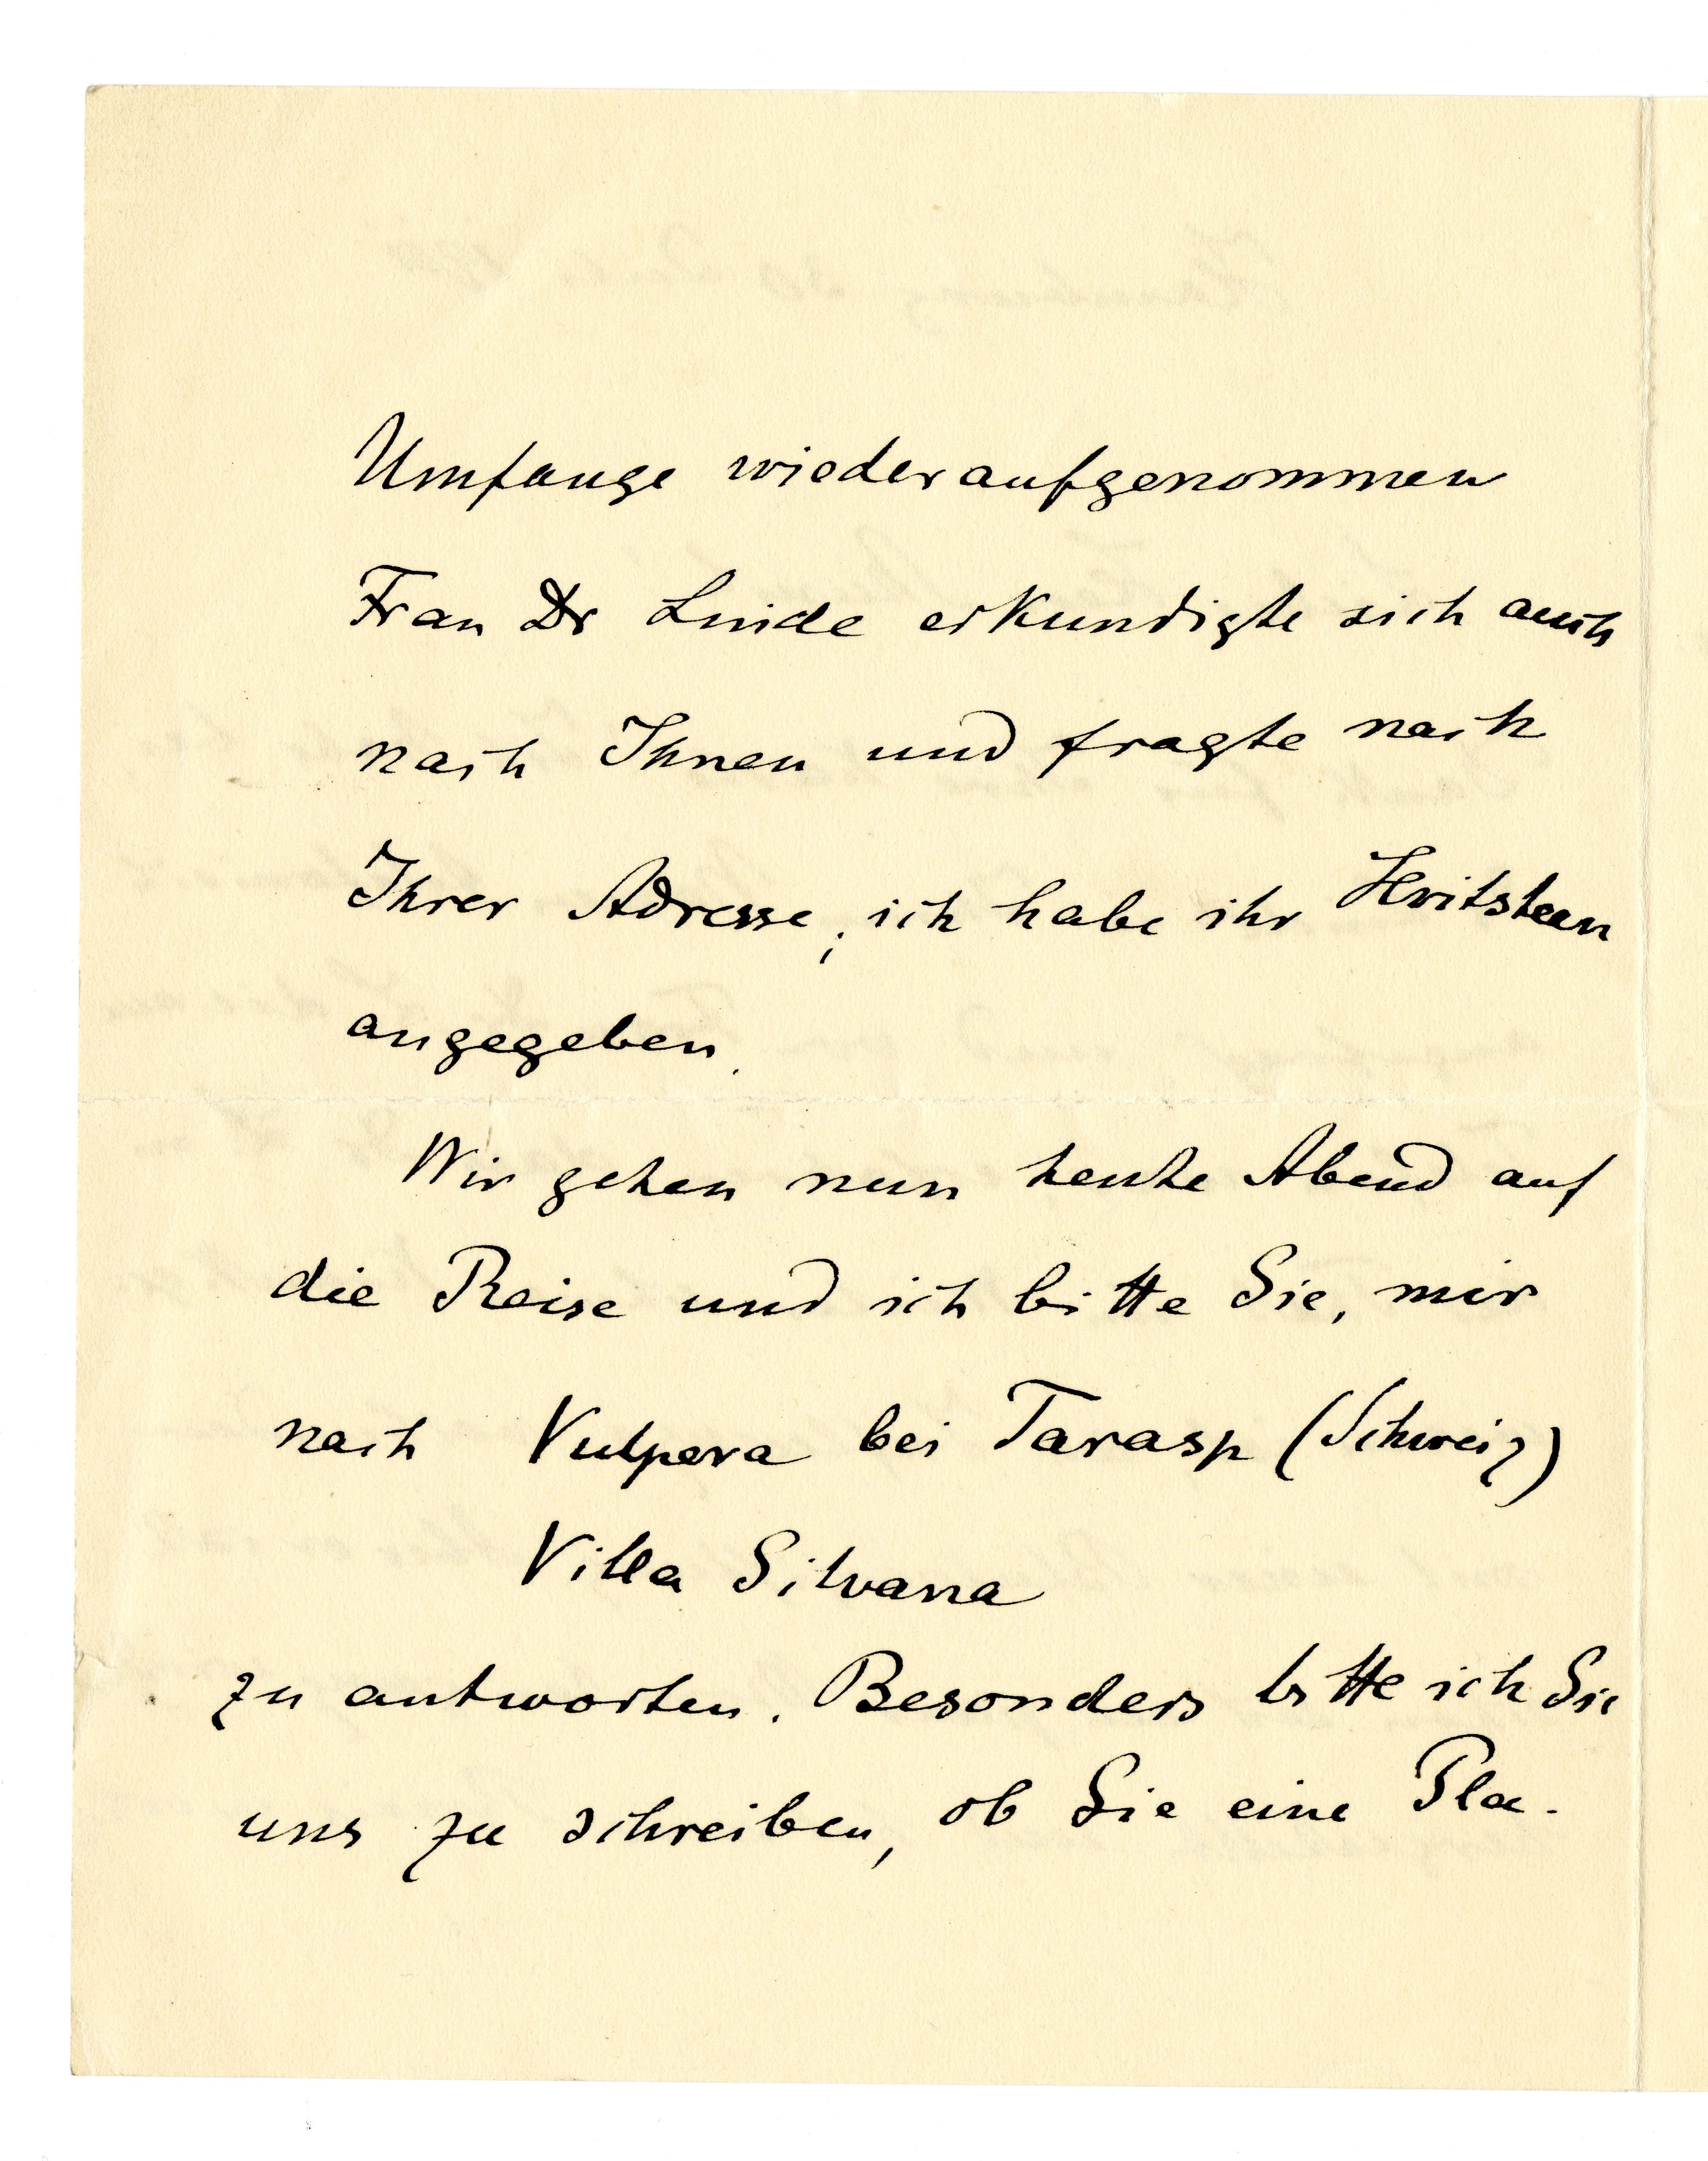 Umfange wiederaufgenommen
Frau Dr Linde erkundigte sich auch
nach Ihnen und fragte nach
Ihrer Adresse; ich habe ihr Hvitsteen
angegeben.
Wir gehen nun heute Abend auf
die Reise und ich bitte Sie, mir
nach Vulpera bei Tarasp (Schweiz)
Villa Silvana
zu antworten. Besonders bitte ich Sie
uns zu schreiben, ob Sie eine Pla-